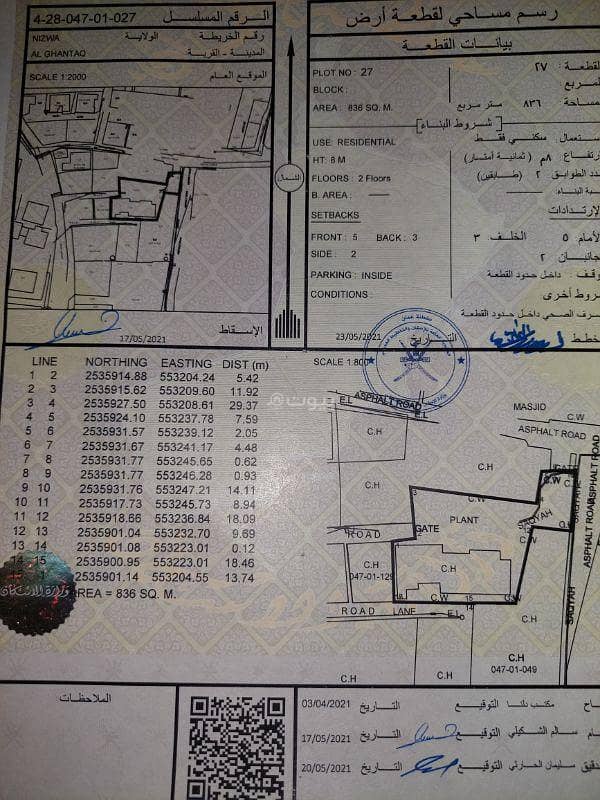 رسم مساحي لقطعة أرض
الرقم المسلسل 4-28-047-01-027
NIZWA الولاية رقم الخريطة
AL GHANTAQ المدينة - القرية
SCALE 1:2000 الموقع العام
بيانات القطعة
PLOT NO : 27 القطعة : ٢٧
BLOCK :
AREA : 836 SQ. M. ٨٣٦ متر مربع
شروط البناء
USE: RESIDENTIAL سكني فقط
HT: 8 M ٨م (ثمانية أمتار)
FLOORS : 2 Floors ٢ (طابقين)
B. AREA :
SETBACKS الإرتدادات
FRONT : 5 BACK : 3 الخلف ٣ ٥
SIDE : 2 ٢
PARKING : INSIDE داخل حدود القطعة
CONDITIONS :
داخل حدود القطعة
17/05/2021 الإسقاط
23/05/2021 التاريخ
LINE NORTHING EASTING DIST (m)
1 2 2535914.88 553204.24 5.42
2 3 2535915.62 553209.60 11.92
3 4 2535927.50 553208.61 29.37
4 5 2535924.10 553237.78 7.59
5 6 2535931.57 553239.12 2.05
6 7 2535931.67 553241.17 4.48
7 8 2535931.77 553245.65 0.62
8 9 2535931.77 553246.28 0.93
9 10 2535931.76 553247.21 14.11
10 11 2535917.73 553245.73 8.94
11 12 2535918.66 553236.84 18.09
12 13 2535901.04 553232.70 9.69
13 14 2535901.08 553223.01 0.12
14 15 2535900.95 553223.01 18.46
2535901.14 553204.55 13.74
AREA = 836 SQ. M.
وزارة الإسكان
الشمال
بيوت
SCALE 1:800
ASPHALT ROAD
E.L
MASJID
C.W
ASPHALT ROAD
C.H
C.H
C.H
GATE
C.W
C.W
PLANT
SAQYAH
GATE
ROAD
C.H
C.H
047-01-129
C.W
ROAD LANE
E.L
SAQYAH
ASPHALT ROAD
C.H
C.H
C.H
047-01-049
الملاحظات
03/04/2021 التاريخ التوقيع
17/05/2021 التاريخ التوقيع سالم الشكيلي
20/05/2021 التاريخ التوقيع سليمان الحارثي